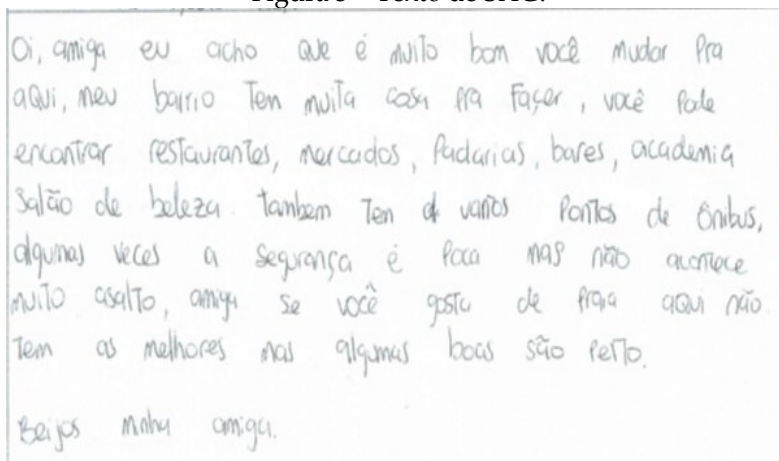 Oi, amiga eu acho que é muito bom você mudar pra
aqui, meu barrio tem muita cosa pra façer, você pode
encontrar restaurantes, mercados, padarias, bares, academia
salão de beleza. tambem tem varios pontos de ônibus,
algumas veces a segurança é poca mas não acontece
muito asalto, amiga se você gosta de praia aqui não
tem as melhores mas algumas boas são perto.
Beijos minha amiga.